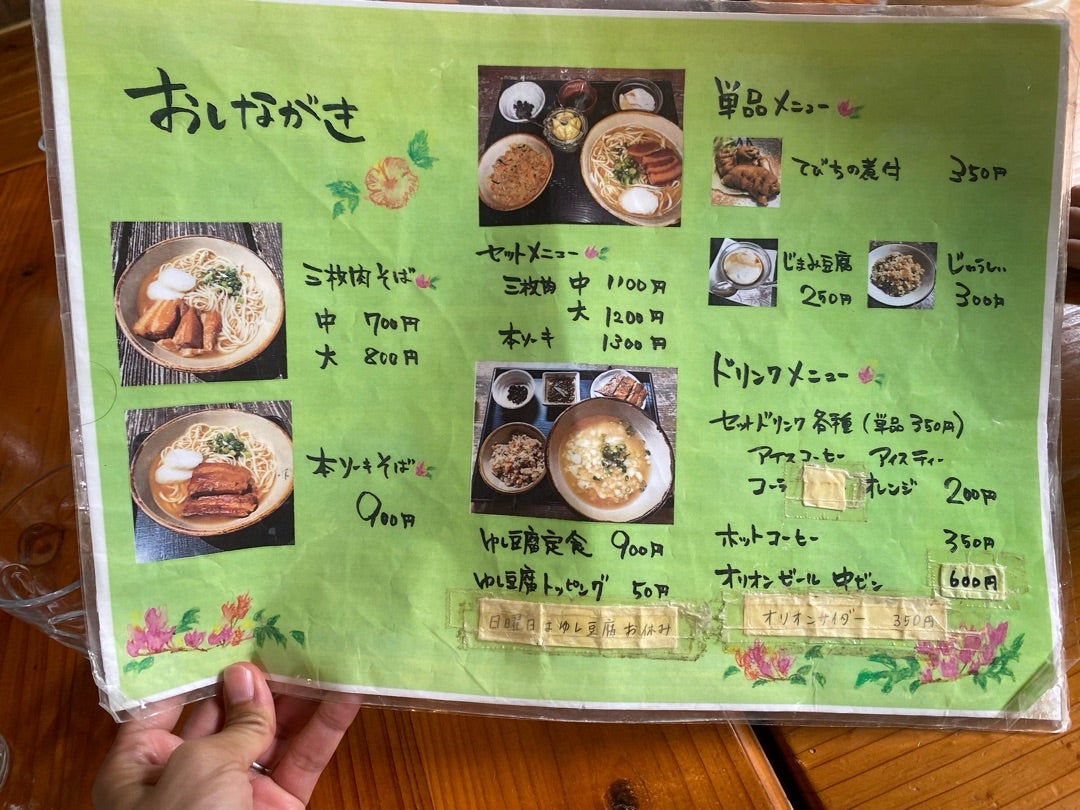 おしながき
三枚肉そば
中 700円
大 800円
本ソーキそば
900円
セットメニュー
三枚肉 中 1100円
大 1200円
本ソーキ 1300円
ゆし豆腐定食 900円
ゆし豆腐トッピング 50円
日曜日はゆし豆腐お休み
単品メニュー
てびちの煮付 350円
じまみ豆腐
250円
じゅうしい
300円
ドリンクメニュー
セットドリンク各種 (単品350円)
アイスコーヒー アイスティー
コーラ オレンジ 200円
ホットコーヒー 350円
オリオンビール 中ビン 600円
オリオンサイダー 350円